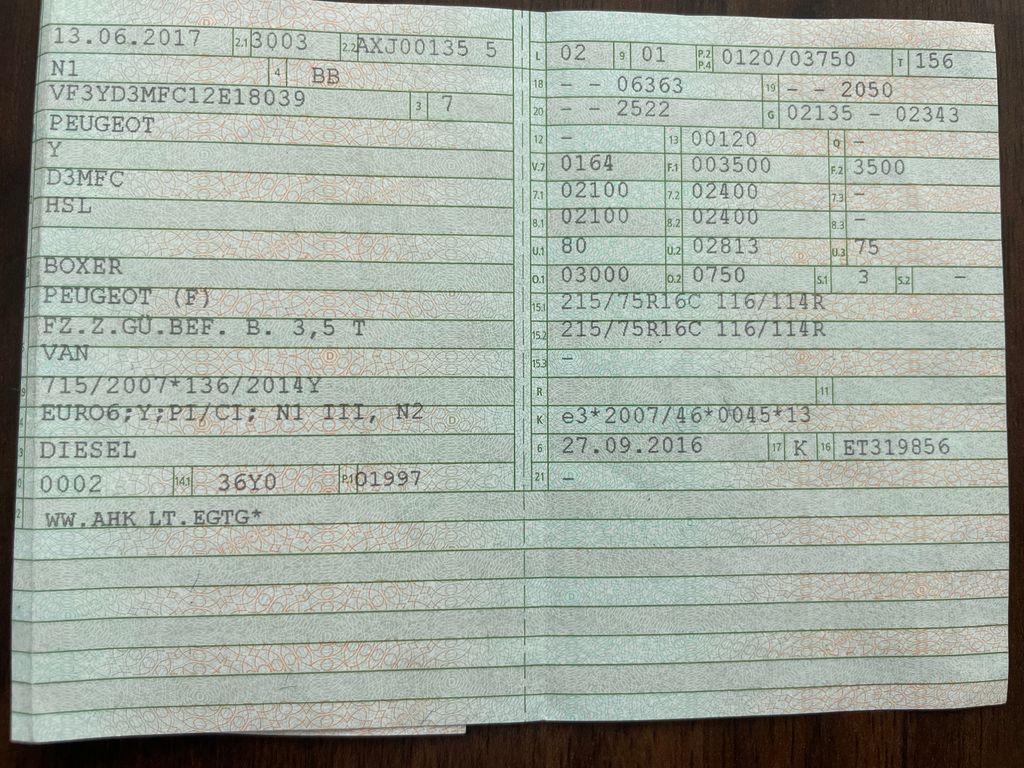 13.06.2017 2.1 3003 2.2 AXJ00135 5
N1 4 BB
VF3YD3MFC12E18039 3 7
PEUGEOT
Y
D3MFC
HSL
BOXER
PEUGEOT (F)
FZ.Z.GÜ.BEF. B. 3,5 T
VAN
715/2007*136/2014Y
EURO6;Y;PI/CI; N1 III, N2
DIESEL
0002 14.1 36Y0 P.1 01997
WW.AHK LT.EGTG*
L 02 9 01 P.2 P.4 0120/03750 T 156
18 - - 06363 19 - - 2050
20 - - 2522 G 02135 - 02343
12 - 13 00120 Q -
V.7 0164 F.1 003500 F.2 3500
7.1 02100 7.2 02400 7.3 -
8.1 02100 8.2 02400 8.3 -
U.1 80 U.2 02813 U.3 75
O.1 03000 O.2 0750 S.1 3 S.2 -
15.1 215/75R16C 116/114R
15.2 215/75R16C 116/114R
15.3 -
R 11
K e3*2007/46*0045*13
6 27.09.2016 17 K 16 ET319856
21 -